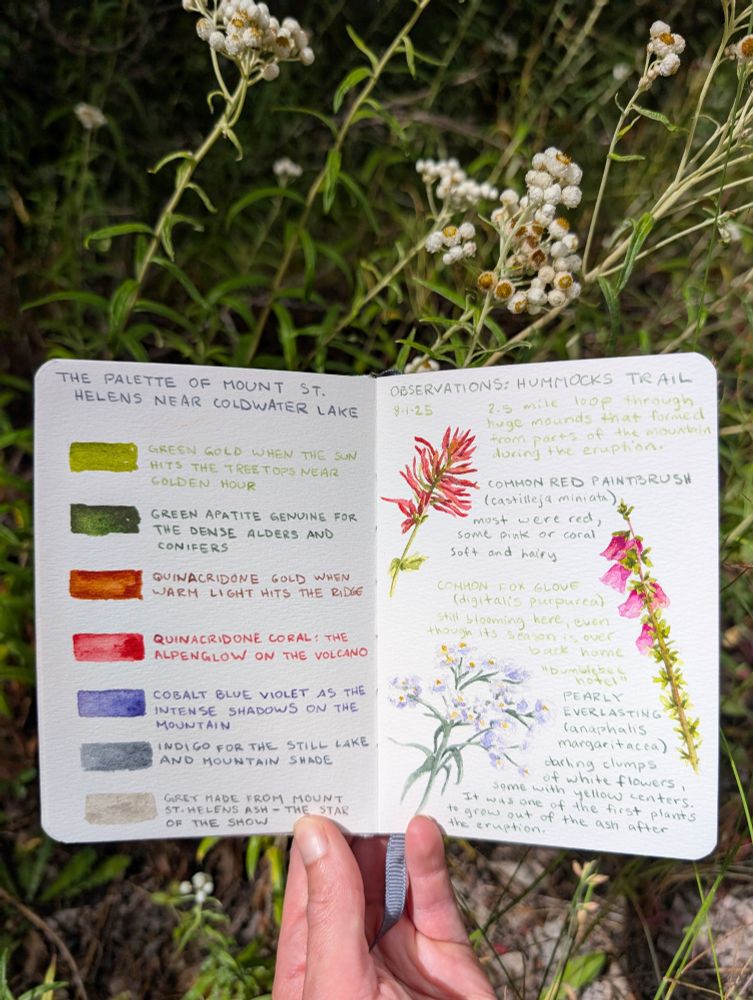 THE PALETTE OF MOUNT ST.
HELENS NEAR COLDWATER LAKE
GREEN GOLD WHEN THE SUN
HITS THE TREETOPS NEAR
GOLDEN HOUR
GREEN APATITE GENUINE FOR
THE DENSE ALDERS AND
CONIFERS
QUINACRIDONE GOLD WHEN
WARM LIGHT HITS THE RIDGE
QUINACRIDONE CORAL: THE
ALPENGLOW ON THE VOLCANO
COBALT BLUE VIOLET AS THE
INTENSE SHADOWS ON THE
MOUNTAIN
INDIGO FOR THE STILL LAKE
AND MOUNTAIN SHADE
GREY MADE FROM MOUNT
ST. HELENS ASH - THE STAR
OF THE SHOW
OBSERVATIONS: HUMMOCKS TRAIL
8-1-25
2.5 mile loop through
huge mounds that formed
from parts of the mountain
during the eruption.
COMMON RED PAINTBRUSH
(castilleja miniata)
most were red,
some pink or coral
soft and hairy
COMMON FOX GLOVE
(digitalis purpurea)
still blooming here, even
though its season is over
back home
"bumblebee
hotel"
PEARLY
EVERLASTING
(anaphalis
margaritacea)
darling clumps
of white flowers,
some with yellow centers.
It was one of the first plants
to grow out of the ash after
the eruption.